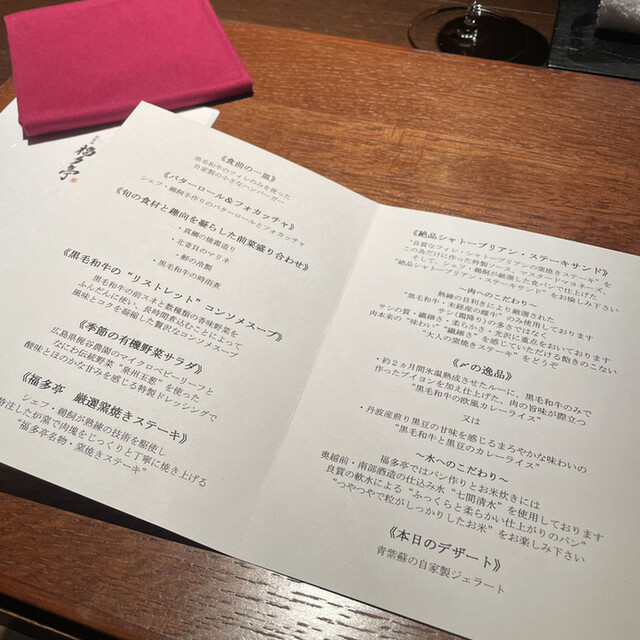 福多亭
《食前の一皿》
黒毛和牛のフィレのみを使った
自家製の小さなハンバーガー
《バターロール&フォカッチャ》
シェフ・鵜飼手作りのバターロールとフォカッチャ
《旬の食材と趣向を凝らした前菜盛り合わせ》
・真鯛の焼霜造り
・北寄貝のマリネ
・鮃の昆製
・黒毛和牛の時雨煮
《黒毛和牛の“リストレット”コンソメスープ》
黒毛和牛の前スネと数種類の香味野菜を
ふんだんに使い、長時間煮込むことによって
風味とコクを凝縮した贅沢なコンソメスープ
《季節の有機野菜サラダ》
広島県梶谷農園のマイクロベビーリーフと
なにわ伝統野菜“泉州玉葱”を使った
酸味とほのかな甘みを感じる特製ドレッシングで
《福多亭 厳選窯焼きステーキ》
シェフ・鵜飼が熟練の技術を駆使し
特注した炉窯で肉塊をじっくりと丁寧に焼き上げる
“福多亭名物・窯焼きステーキ”
《絶品シャトーブリアン・ステーキサンド》
“良質なフィレ・シャトーブリアンの窯焼きステーキ”を
この為だけに作った特製ソース、マスタードマヨネーズ
そして、シェフ・鵜飼が厳選した食パンで仕上げた
“絶品シャトーブリアン・ステーキサンド”をお愉しみ下さい
～肉へのこだわり～
熟練の目利きにより厳選された
“黒毛和牛・未経産の雌牛”のみ使用しております
サシ(霜降り)の多さではなく
サシの質・繊細さ・柔らかさ・光沢に重点をおいております
肉本来の“味わい”“繊細さ”を感じていただける飽きのこない
“大人の窯焼きステーキ”をどうぞ
《〆の逸品》
・約2ヵ月間氷温熟成させたルーに、黒毛和牛のみで
作ったブイヨンを加え仕上げた、肉の旨味が際立つ
“黒毛和牛の欧風カレーライス”
又は
・丹波産煎り黒豆の甘味を感じるまろやかな味わいの
“黒毛和牛と黒豆のカレーライス”
～水へのこだわり～
福多亭ではパン作りとお米炊きには
奥越前・南部酒造の仕込み水“七間清水”を使用しております
良質の軟水による“ふっくらと柔らかい仕上がりのパン”
“つやつやで粒がしっかりしたお米”をお楽しみ下さい
《本日のデザート》
青紫蘇の自家製ジェラート